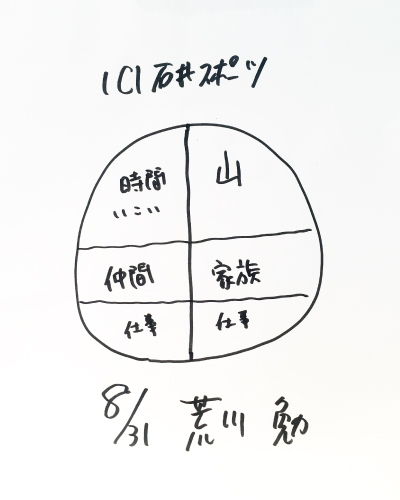 ICI石井スポーツ
時間 山
いこい
仲間 家族
仕事 仕事
8/31 荒川 勉